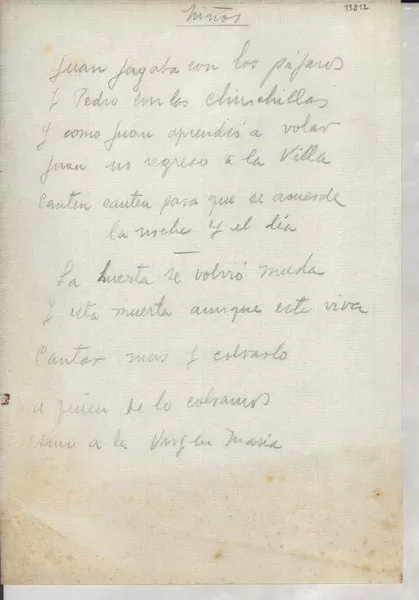 13812
Niños
Juan jugaba con los pájaros
Y Pedro con las chinchillas
Y como Juan aprendió a volar
Juan no regreso a la Villa
Canten canten para que se acuerde
la noche y el día
La huerta se volvió muda
Y esta muerta aunque este viva
Cantar mas y
a quien de lo cobramos
sino a la Virgen Maria